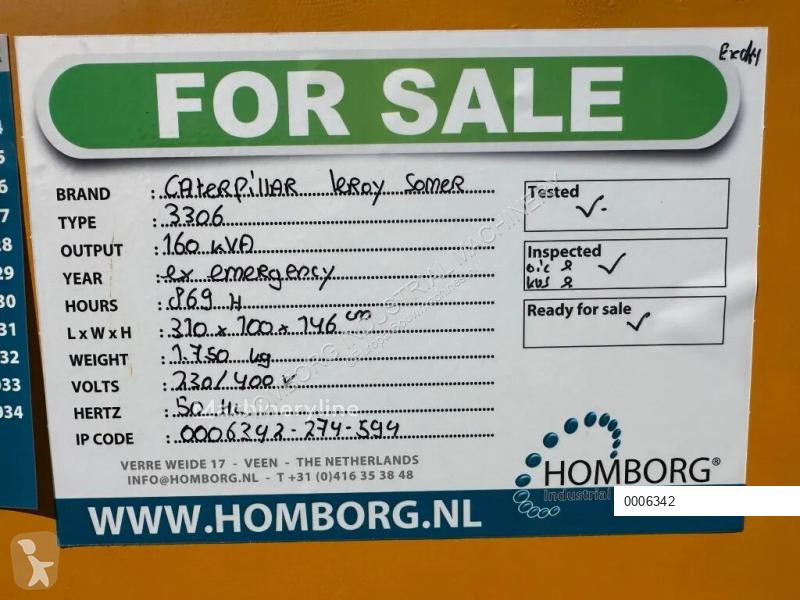 FOR SALE
BRAND : CATERPILLAR LEROY SOMER
TYPE : 3306
OUTPUT : 160 KVA
YEAR : ex emergency
HOURS : 869 H
L x W x H : 310 x 100 x 146 cm
WEIGHT : 1.750 kg
VOLTS : 230/400 V
HERTZ : 50 Hz
IP CODE : 0006342-274-594
Tested
Inspected
Ready for sale
VERRE WEIDE 17 - VEEN - THE NETHERLANDS
INFO@HOMBORG.NL - T +31 (0)416 35 38 48
HOMBORG®
Industrial
0006342
WWW.HOMBORG.NL
Machineryline
HOMBORG INDUSTRIAL MACHINERY
28
29
30
31
32
033
034